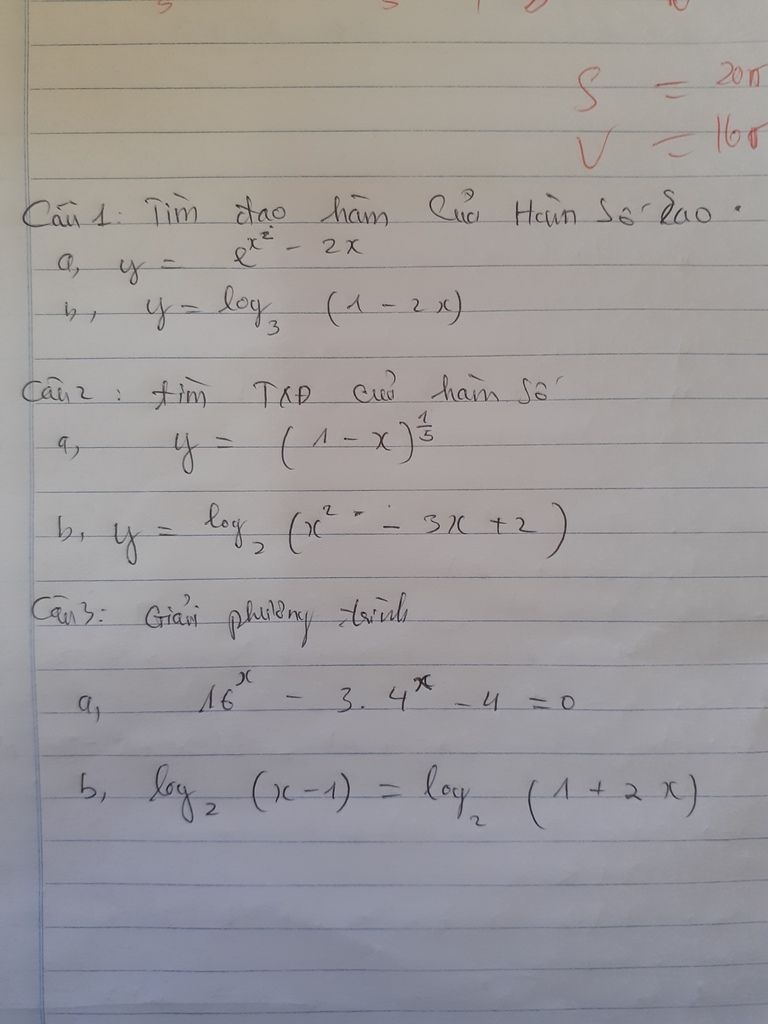 S = 20π
V = 16π
Câu 1: Tìm đạo hàm Của Hàm Số Sao.
a, y = e^{x^2} - 2x
b, y = log_3 (1 - 2x)
Câu 2: tìm TXĐ của hàm số
a, y = (1 - x)^{\frac{1}{5}}
b, y = log_2 (x^2 - 3x + 2)
Câu 3: Giải phương trình
a, 16^x - 3. 4^x - 4 = 0
b, log_2 (x - 1) = log_2 (1 + 2x)